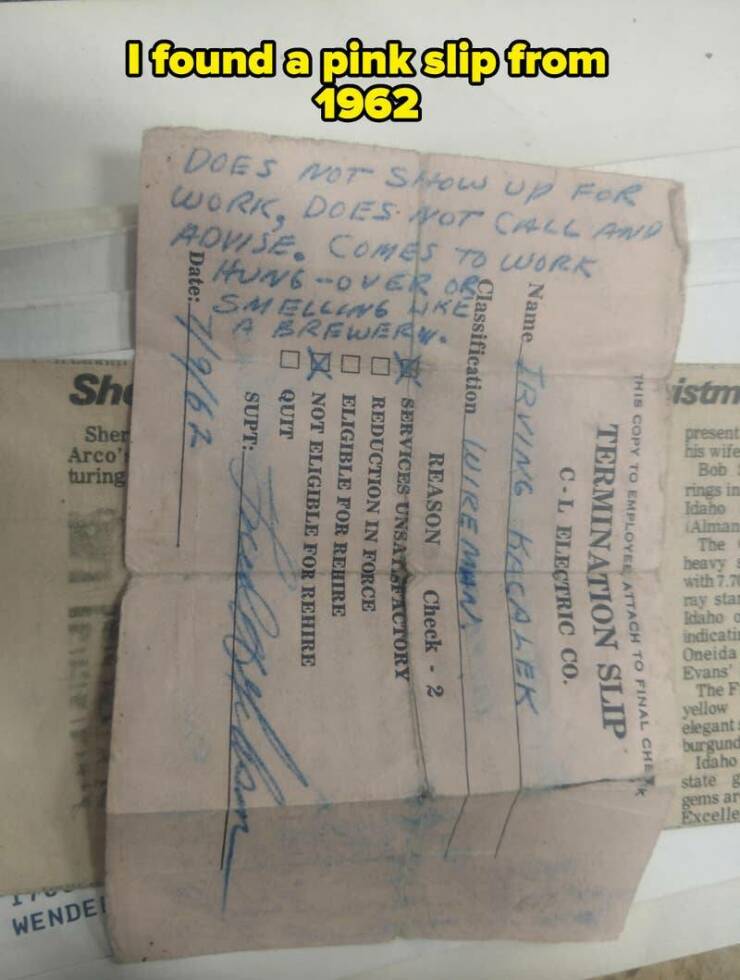 I found a pink slip from
1962
DOES NOT SHOW UP FOR
WORK, DOES NOT CALL AND
ADVISE. COMES TO WORK
HUNG-OVER OR
SMELLING LIKE
A BREWERY.
THIS COPY TO EMPLOYEE ATTACH TO FINAL CHECK
TERMINATION SLIP
C-L ELECTRIC CO.
Name IRVING KACALEK
Classification WIREMAN.
REASON Check - 2
SERVICES UNSATISFACTORY
REDUCTION IN FORCE
ELIGIBLE FOR REHIRE
NOT ELIGIBLE FOR REHIRE
QUIT
SUPT:
Date: 7/9/62
She
Sher
Arco's
turing
istm
present
his wife
Bob
rings in
Idaho
(Alman
The
heavy
with 7.7
ray star
Idaho
indicati
Oneida
Evans'
The F
yellow
elegant
burgund
Idaho
state g
gems ar
Excelle
WENDE